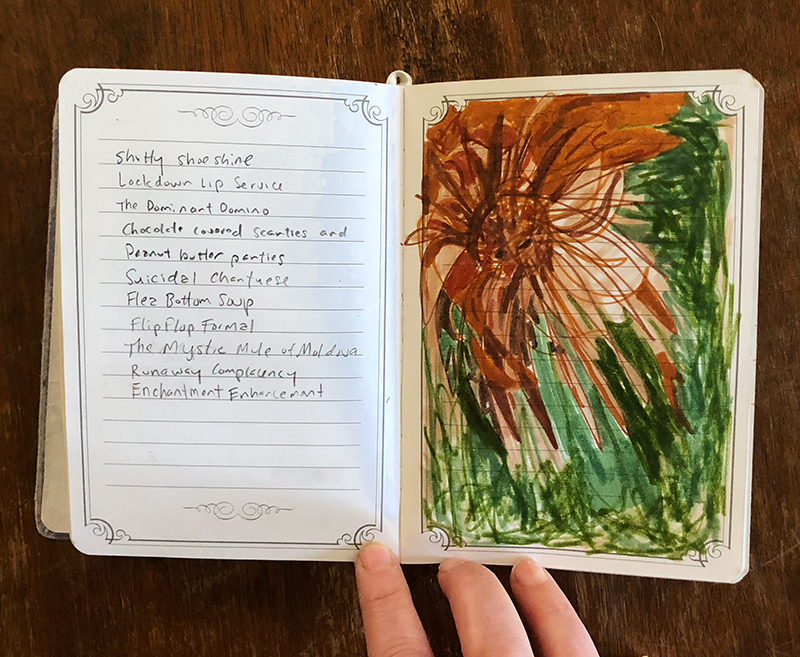 Shutty Shoeshine
Lockdown Lip Service
The Dominant Domino
Chocolate covered scanties and
Peanut butter panties
Suicidal Chartuese
Flea Bottom Soup
Flip Flop Formal
The Mystic Mule of Moldova
Runaway Complacency
Enchantment Enhancement